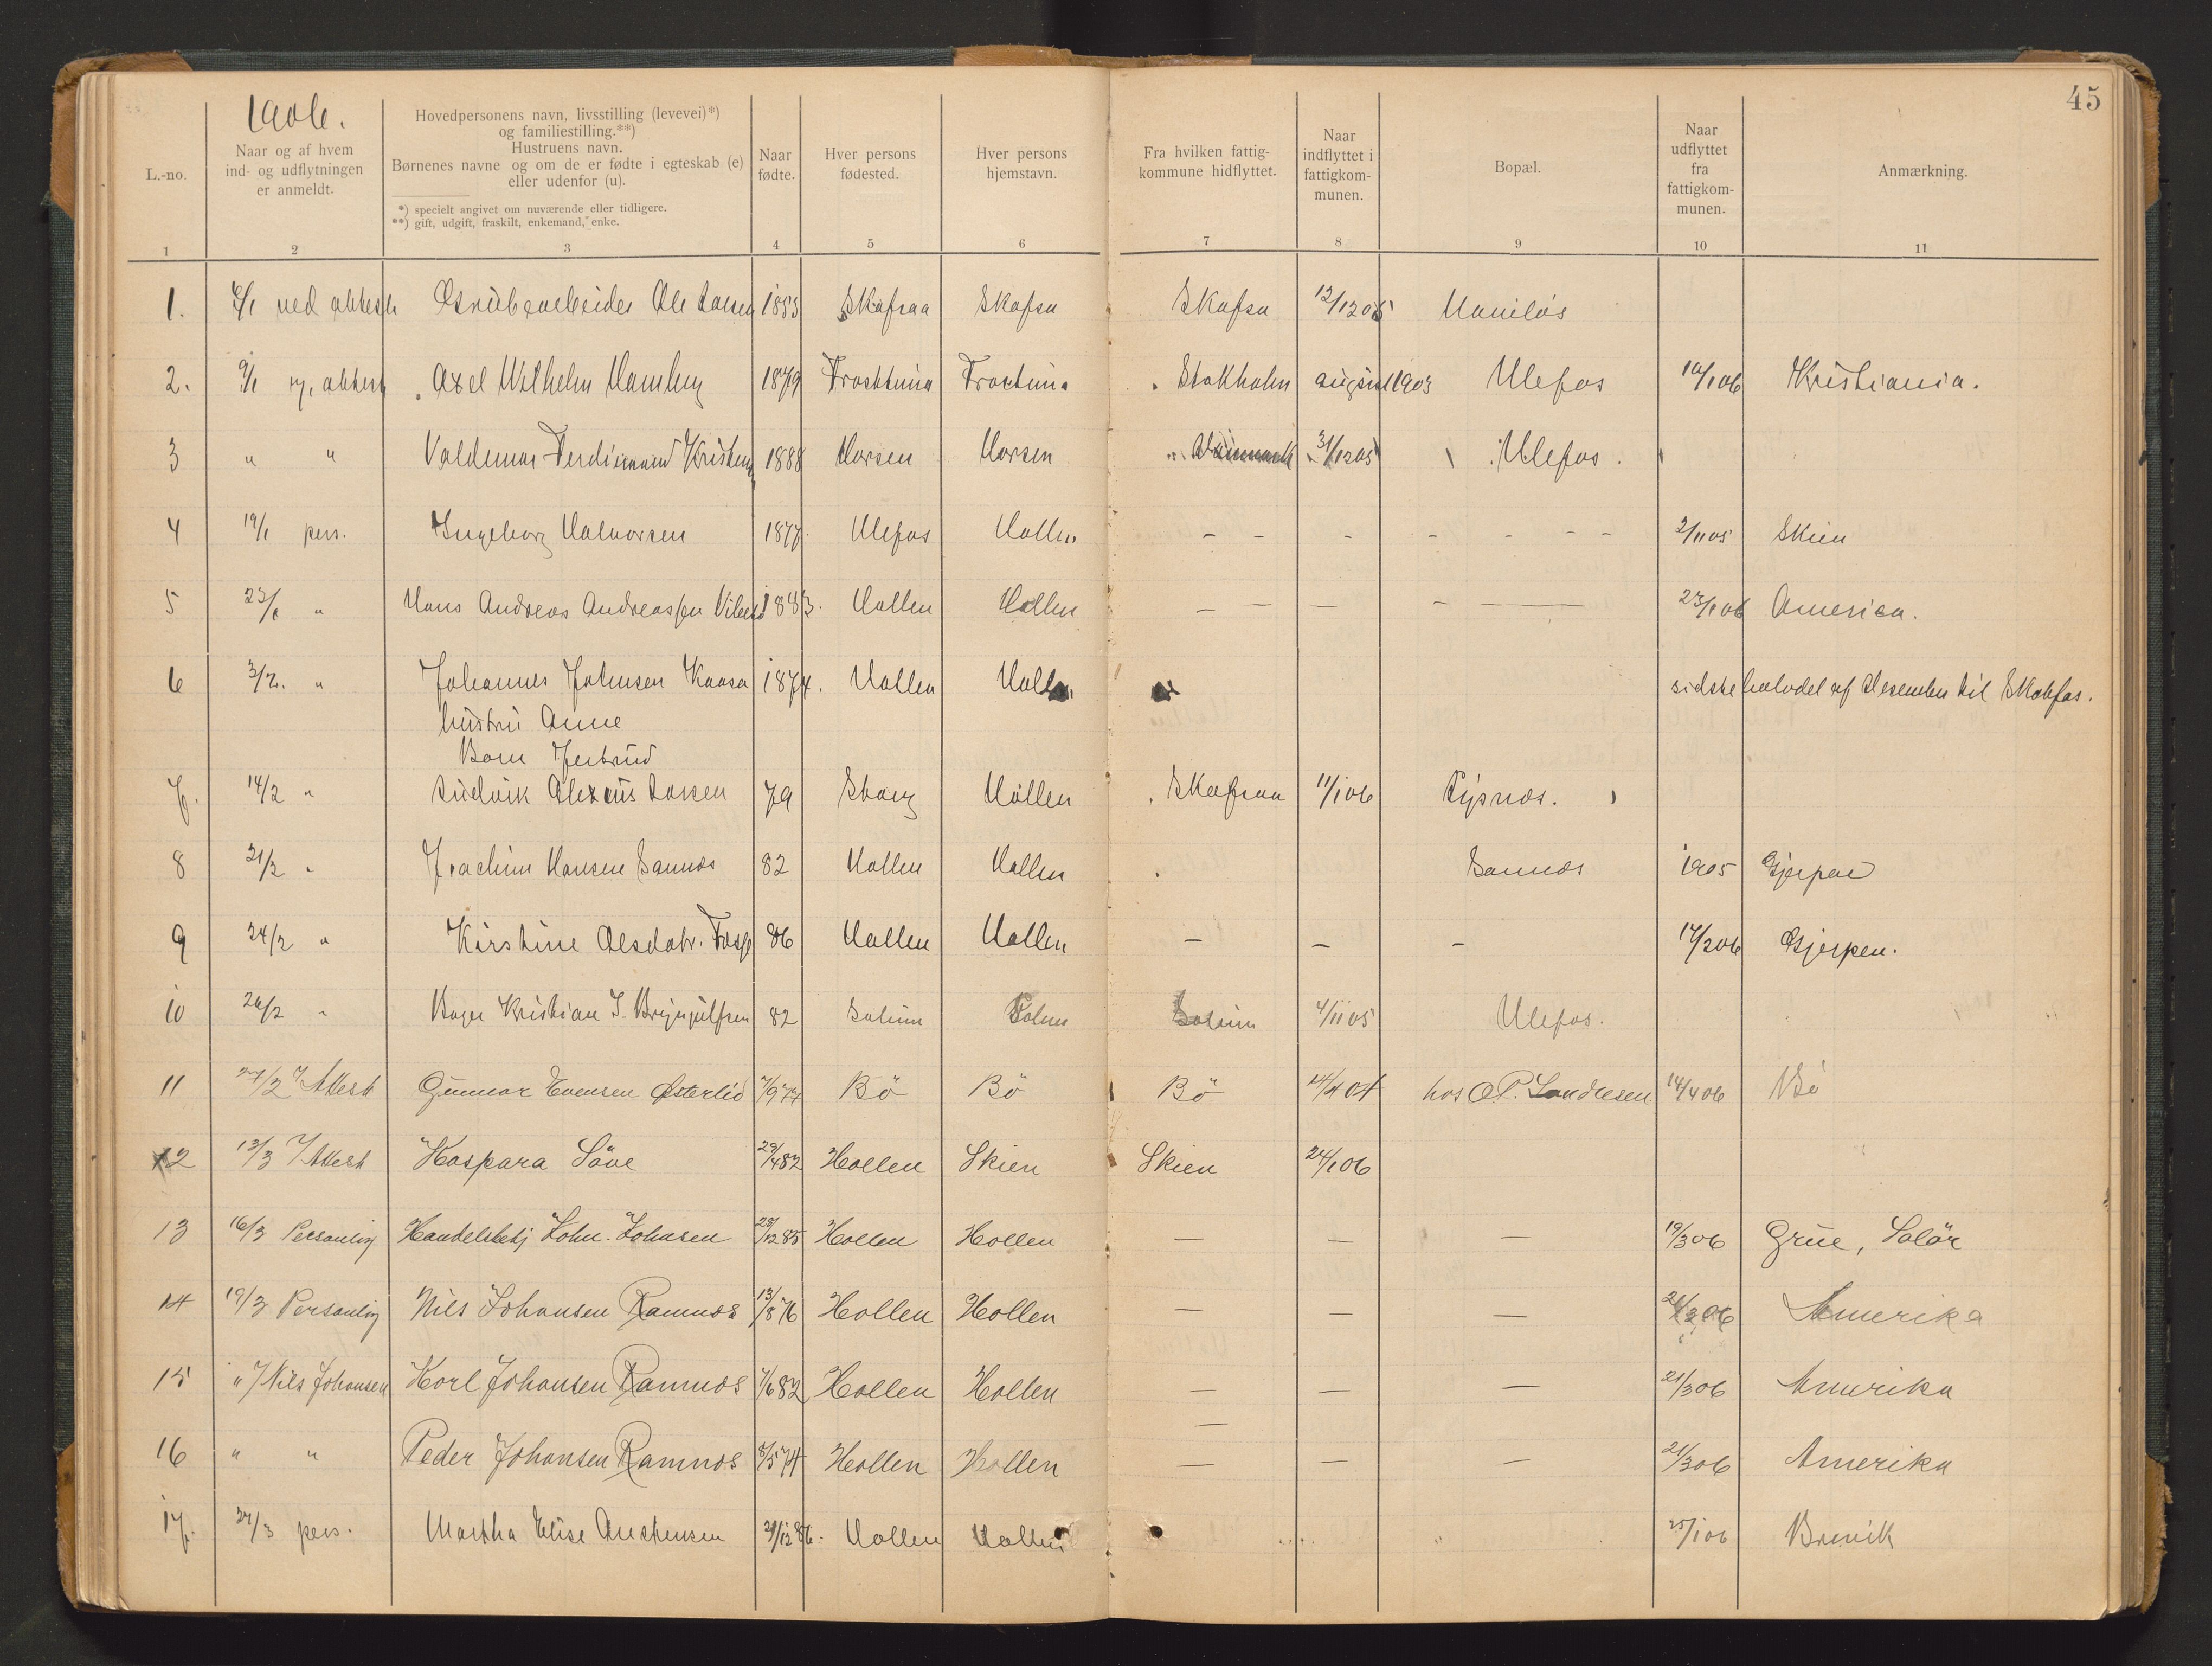 45
1906.
L.-no.
Naar og af hvem
ind- og udflytningen
er anmeldt.
Hovedpersonens navn, livsstilling (levevei)*)
og familiestilling.**)
Hustruens navn.
Børnenes navne og om de er fødte i egteskab (e)
eller udenfor (u).
*) specielt angivet om nuværende eller tidligere.
**) gift, udgift, fraskilt, enkemand, enke.
Naar
fødte.
Hver persons
fødested.
Hver persons
hjemstavn.
Fra hvilken fattig-
kommune hidflyttet.
Naar
indflyttet i
fattigkom-
munen.
Bopæl.
Naar
udflyttet
fra
fattigkom-
munen.
Anmærkning.
1 2 3 4 5 6 7 8 9 10 11
1. ved attest Grubearbeider Ole Larsen 1853 Skafsaa Skafsa Skafsa 12/12 05
2. 9/1 attest Axel Wilhelm Hamberg 1879 Frosttuna Trostuna Stokholm august 1903 Ulefos 10/1 06 Kristiania.
3 " " Valdemar Ferdinand Kristens 1888 Horsen Horsen Danmark 31/12 05 Ulefos.
4 19/1 pers. Ingeborg Halvorsen 1877. Ulefos Hollen - - - - - - - 2/11 05 Skien
5 23/1 " Hans Andreas Andreassen 1883. Hollen Hollen - - - - - 23/1 06 America.
6 3/2. " Johannes Johnsen Kaasa 1874. Hollen Hollen sidste halvdel af Desember til Skotfos.
hustru Anne
Barn Jertrud
7. 14/2 " Ludvik Alexius Larsen 79 Hollen Skafsaa 11/1 06
8 21/2 " Joachim Hansen Sannes 82 Hollen Hollen Sannes 1905 Gjerpen
9 24/2 " Kirstine Olsdatr. 86 Hollen Hollen - - - 17/2 06 Gjerpen.
10 26/2 " Bager Kristian J. Brynjulfsen 82 Solum Solum Solum 4/11 05 Ulefos.
11 27/2 Attest Gunnar Evensen Østerlid 7/9 74 Bö Bö Bö 14/4 04 hos O P. Landresen 14/4 06 Bö
12 13/3 Attest Kaspara Söve 29/4 82 Hollen Skien Skien 24/1 06
13 16/3 Personlig Handelsbetj John. Johnsen 23/12 85 Hollen Hollen - - - 19/3 06 Grue, Solör
14 19/3 Personlig Nils Johansen Ramnæs 13/8 76 Hollen Hollen - - - 21/3 06 Amerika
15 " Nils Johansen Karl Johansen Ramnæs 7/6 82 Hollen Hollen - - - 21/3 06 Amerika
16 " " Peder Johansen Ramnæs 8/5 74 Hollen Hollen - - - 21/3 06 Amerika
17. 27/3 pers. Martha Elise Austensen 29/12 86. Hollen Hollen 25/1 06 Brevik